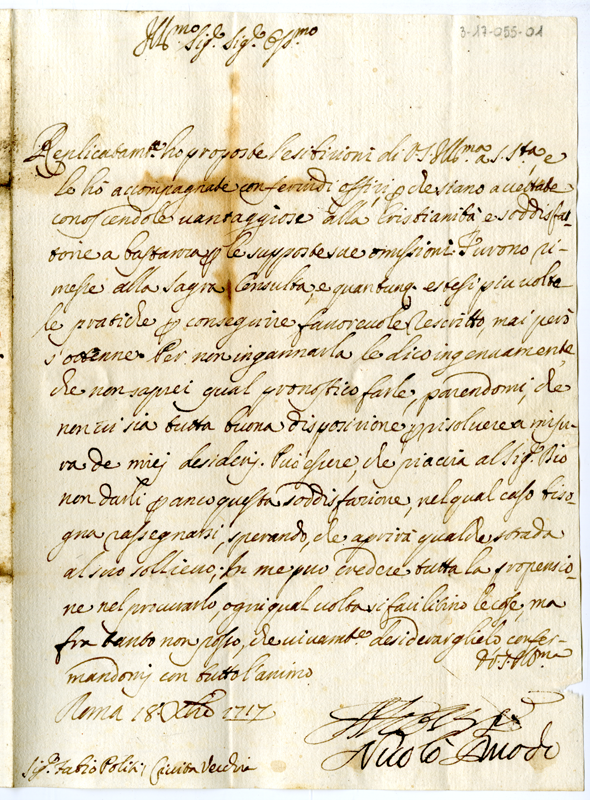 3-17-055-01
Ill.mo Sig.r Sig.r Oss.mo
Replicatam.te ho proposte l'esibizioni di V.S. Ill.ma a S. S.tà, e
le hò accompagnate con fervidi offizj p che siano accettate
conoscendole vantaggiose alla Cristianità e soddisfat-
torie a bastanza p le supposte sue omissioni. Furono ri-
messe alla Sagra Consulta, e quantunq. estesi più volte
le pratiche p conseguire favorevole Rescritto, mai però
s'ottenne. Per non ingannarla le dico ingenuamente,
che non saprei qual pronostico farle, parendomi, che
non vi sia tutta buona disposizione p risolvere a misu-
ra de miej desiderj. Può essere, che piaccia al Sig.r Dio
non darli p anco questa soddisfazione, nel qual caso biso
gna rassegnarsi, sperando, che aprirà qualche strada
al suo sollievo; In me può credere tutta la propensio-
ne nel procurarlo, ogni qual volta si facilitino le cose, ma
fra tanto non posso, che vivam.te desiderarglielo confer-
mandomj con tutto l'animo
Di V.S. Ill.ma
Roma 18 Xbre 1717
Nicolò
Sig.r Fabio Civita Vecchia